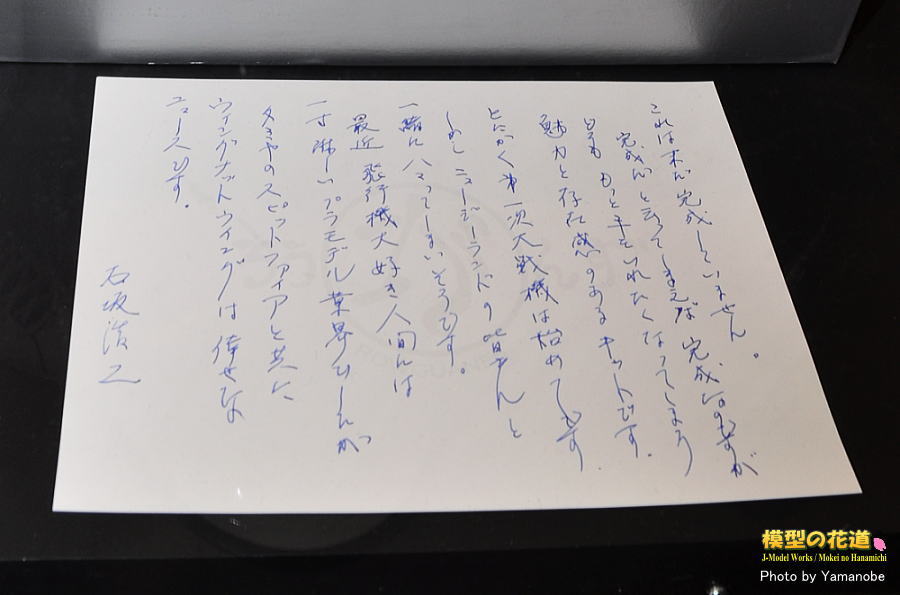 これは未だ完成していません。
完成だと云ってしまえば完成なのですが
どうも もっと手をいれたくなってしまう
魅力と存在感のあるキットです。
とにかく第一次大戦機は始めてです.
しかし ニュージーランドの皆さんと
一緒に ハマってしまいそうです。
最近 飛行機大好き人間には
一寸淋しいプラモデル業界でしたが
タミヤのスピットファイアと共に
ウィングナットウィングは倖せな
ニュースです.
石坂浩二
模型の花道
J-Model Works / Mokei no Hanamichi
Photo by Yamanobe